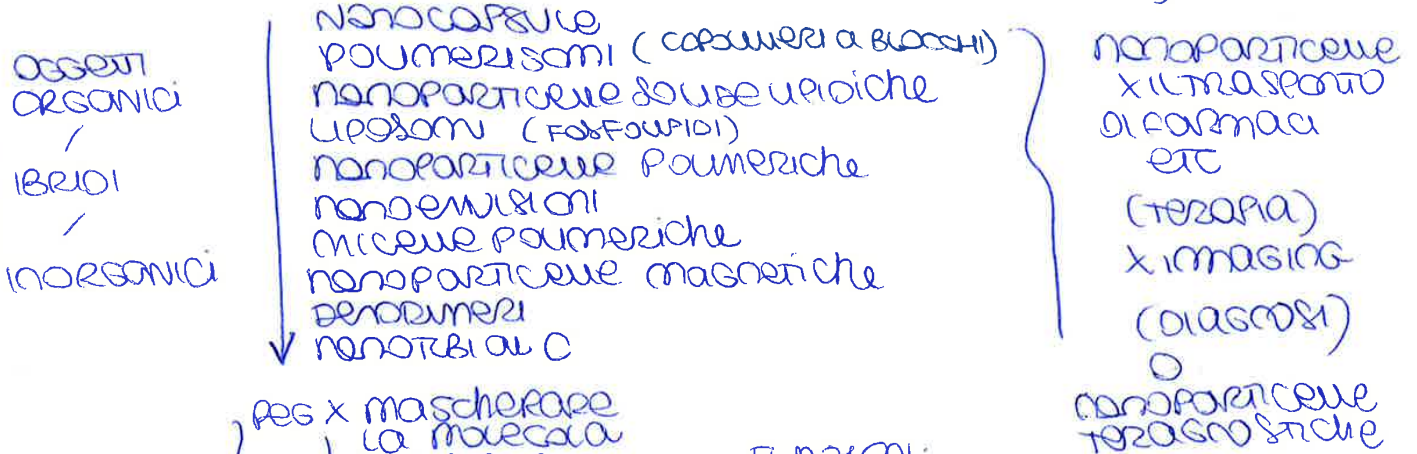 OGGETTI
ORGANICI
/
IBRIDI
/
INORGANICI
NANOCAPSULE
POLIMERISOMI (COPOLIMERI A BLOCCHI)
nanoparticelle solide lipidiche
LIPOSOMI (FOSFOLIPIDI)
nanoparticelle polimeriche
nanoemulsioni
micelle polimeriche
nanoparticelle magnetiche
DENDRIMERI
nanotubi al C
nanoparticelle
x il trasporto
di farmaci
etc
(terapia)
x imaging
(diagnosi)
O
nanoparticelle
teragnostiche
PEG x mascherare
la molecola